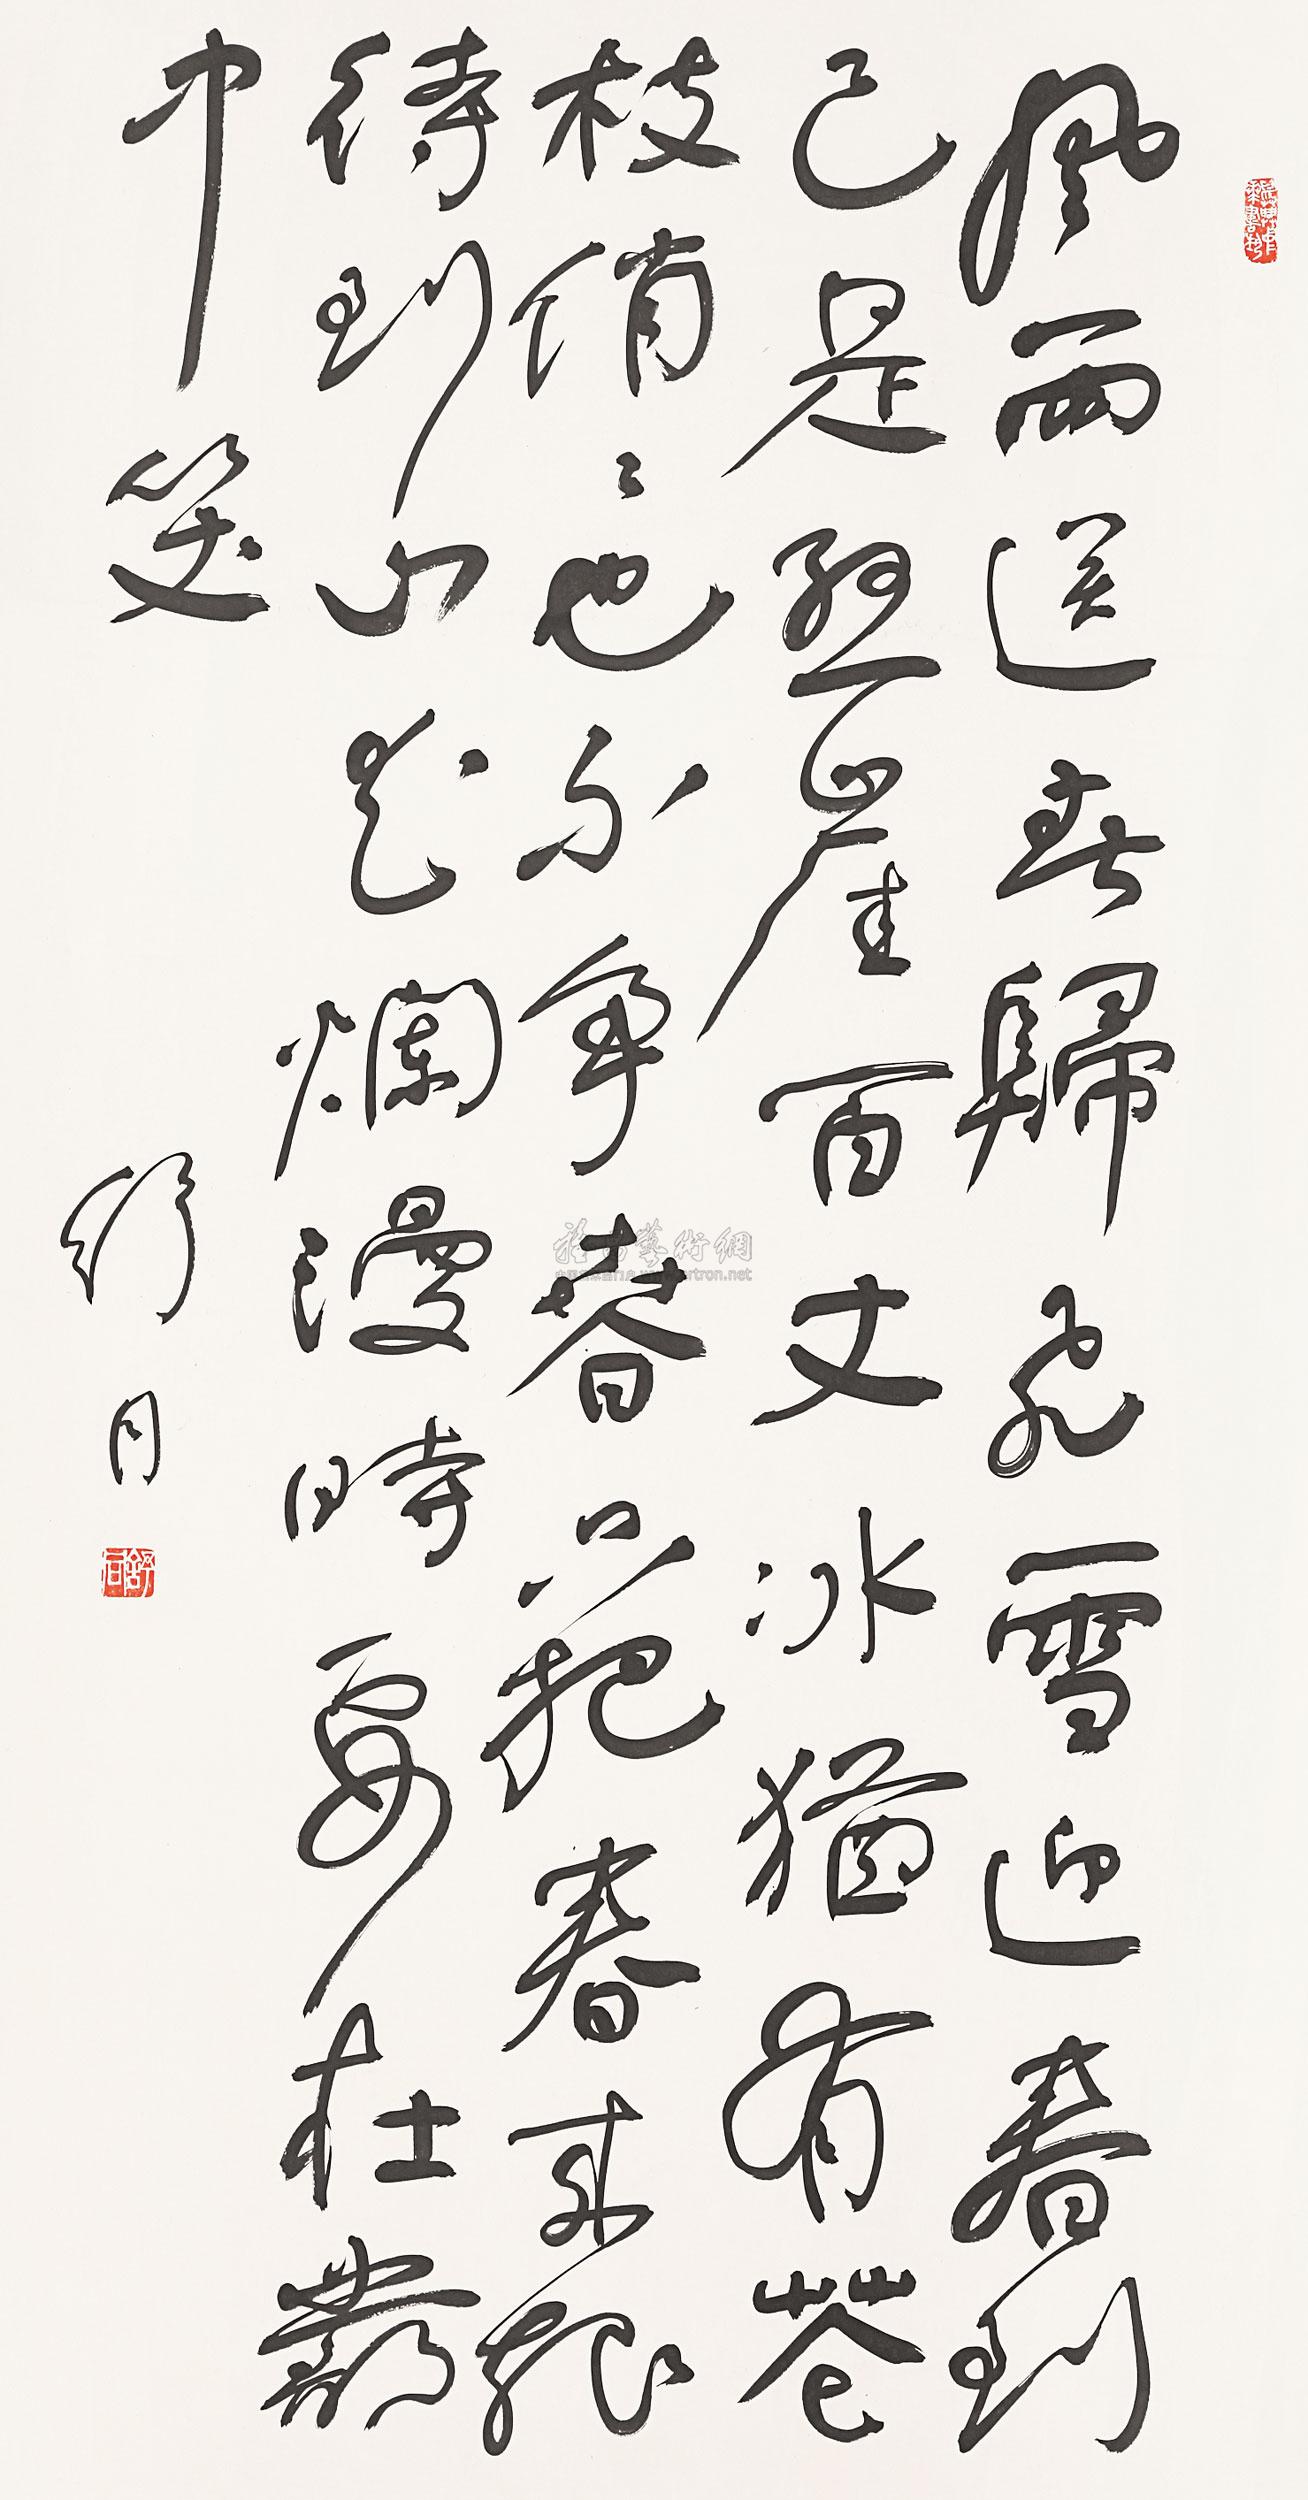 風雨送春歸飛雪迎春到
已是懸崖百丈冰猶有花
枝俏々也不争春只把春来報
待到山花爛漫時要在叢
中笑
舒同
舒同
雅昌藝術網
artron.net